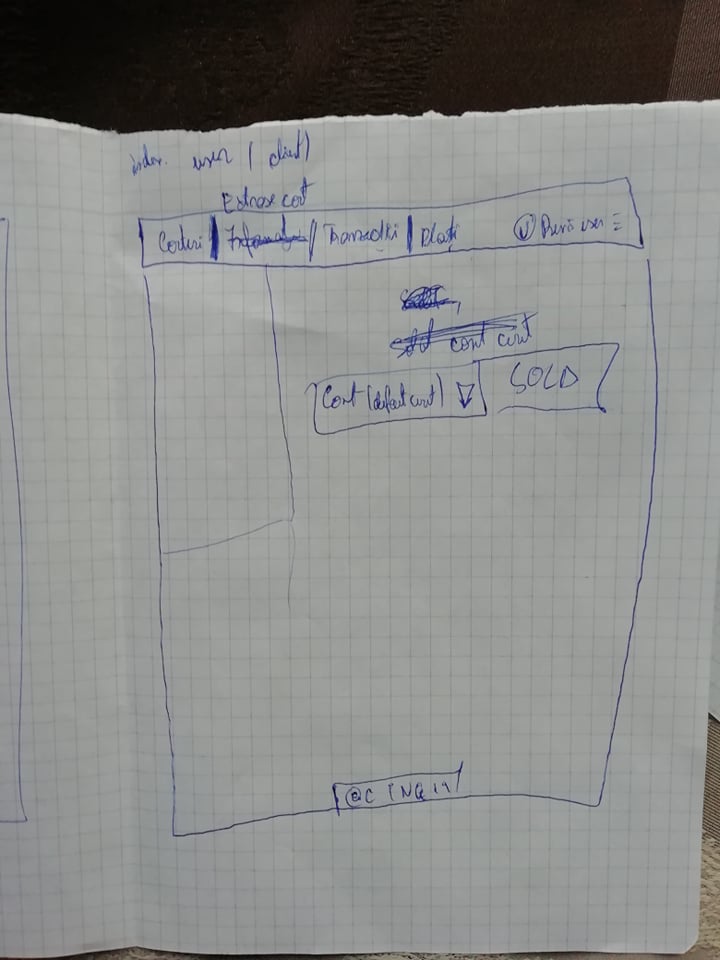 index. user (client)
Extrase cont
Conturi | Informații | Tranzacții | Plăți
user
cont curent
Cont (default curent)
SOLD